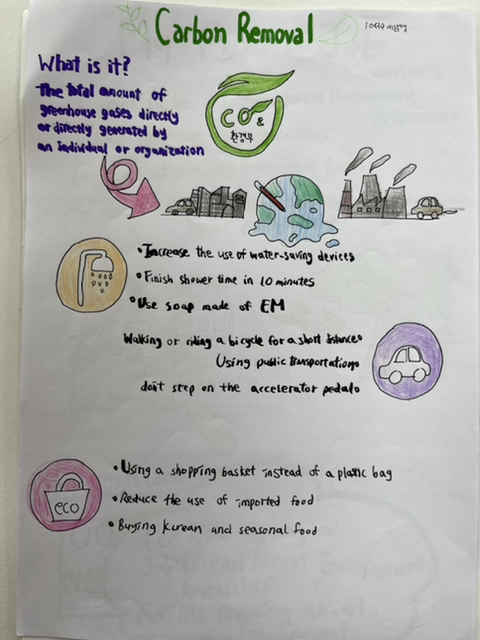 Carbon Removal
What is it?
The total amount of
greenhouse gases directly
or directly generated by
an individual or organization
CO
환경부
•Increase the use of water-saving devices
•Finish shower time in 10 minutes
•Use soap made of EM
Walking or riding a bicycle for a short distance•
Using public transportation•
don't step on the accelerator pedal•
eco
•Using a shopping basket instead of a plastic bag
•Reduce the use of imported food
•Buying Korean and seasonal food